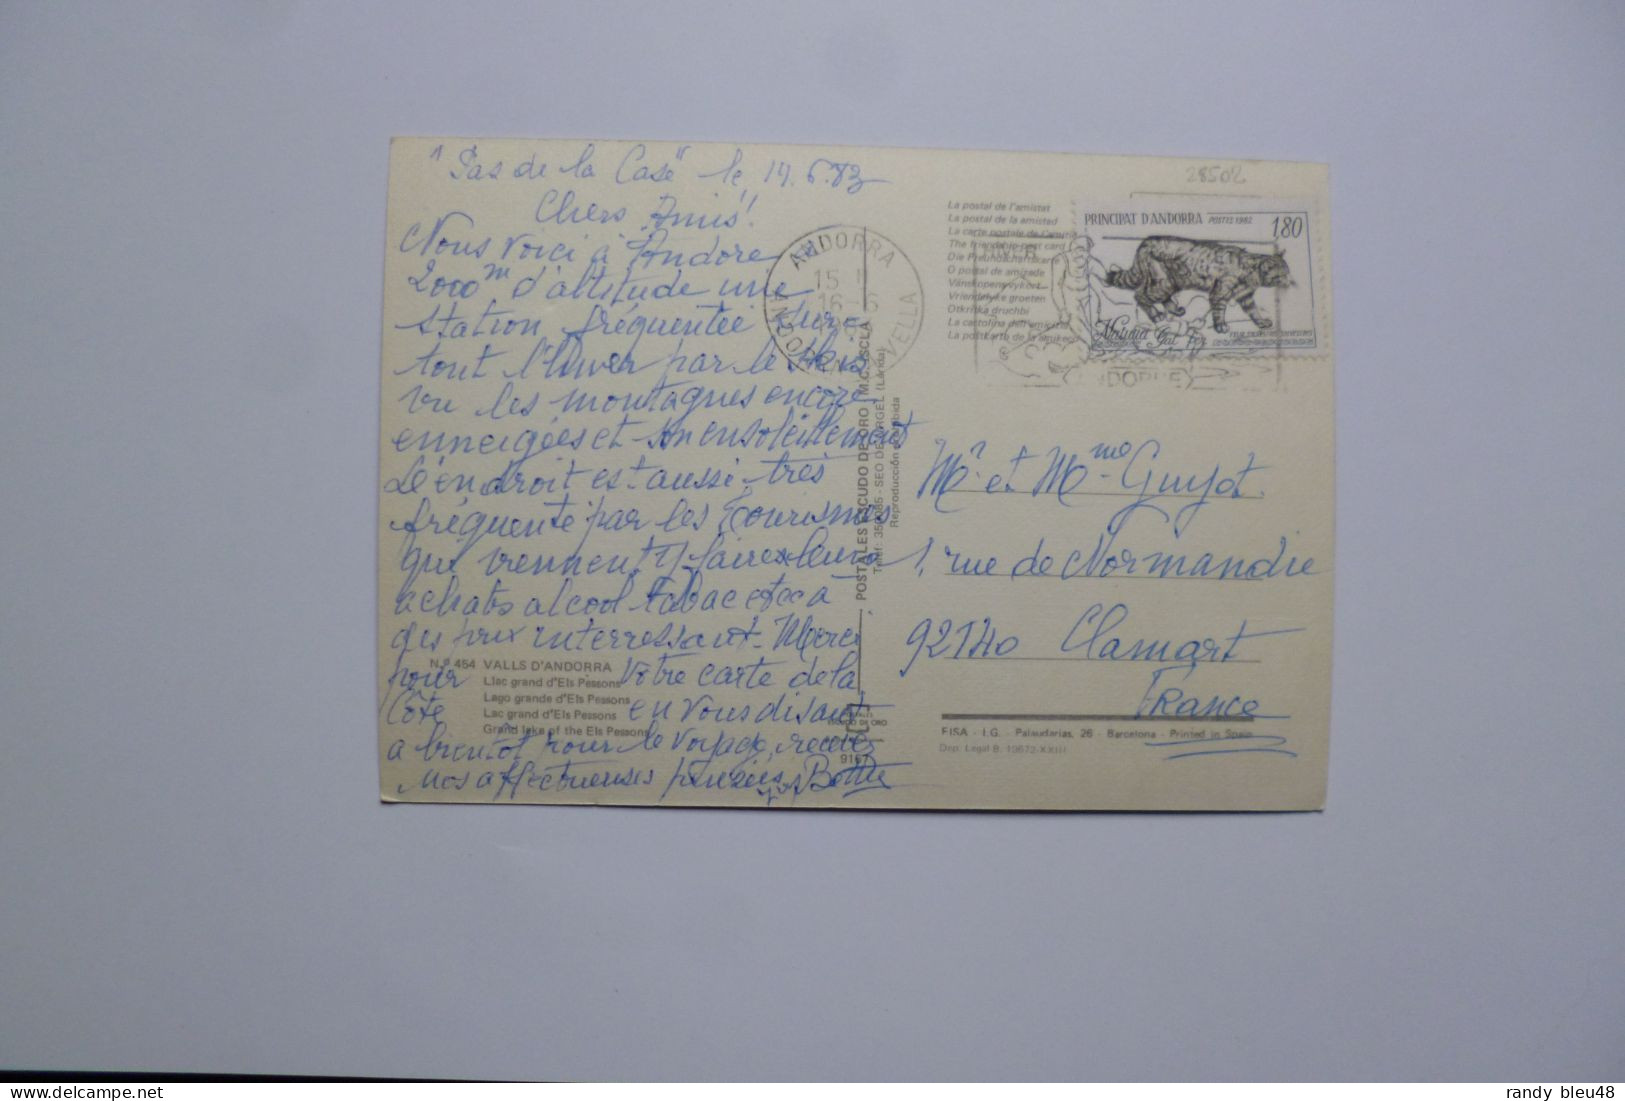 "Pas de la Case" le 14.6.83
Chers Amis!
Nous voici à Andore
2000m d'altitude une
station fréquentée sur-
tout l'hiver par le skis
vu les montagnes encore
enneigées et son ensoleillement
L'endroit est aussi très
fréquenté par les Tourismes
qui viennent faire leurs
achats alcool tabac etc à
des prix interressant. Merci
pour votre carte de la
Côte en vous disant
a bientôt pour le voyage, recevez
nos affectueuses pensées
N.º 454 VALLS D'ANDORRA
Llac grand d'Els Pessons
Lago grande d'Els Pessons
Lac grand d'Els Pessons
Grand lake of the Els Pessons
ANDORRA
15
16-6
VELLA
POSTALES ESCUDO DE ORO (M.C. ISCLA)
Telef: 350085 - SEO DE URGEL (Lérida)
Reproducción prohibida
ESCUDO DE ORO
9167
28502
La postal de l'amistat
La postal de la amistad
La carte postale de l'amitié
The friendship post card
Die Freundschaftskarte
O postal de amizade
Vänskapenvykort
Vriendelyke groeten
Otkritka druchbi
La cartolina dell'amicizia
PRINCIPAT D'ANDORRA POSTES 1982 1,80
Natura Gat fer
ANDORRE
Mr et Mme Guyot
1, rue de Normandie
92140 Clamart
France
FISA - I.G. - Palaudarias, 26 - Barcelona - Printed in Spain
Dep. Legal B. 13672-XXIII
randy bleu48